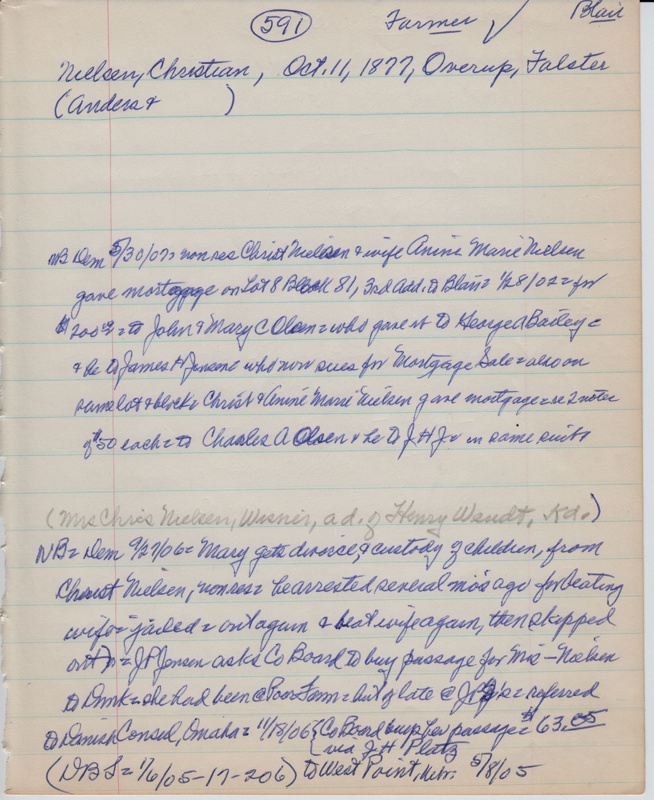 591 Farmer ✓ Blair
Nielsen, Christian, Oct. 11, 1877, Overup, Falster
(Anders + )
NB Dem 5/30/07 = nonres Christ Nielsen + wife Anine Marie Nielsen
gave mortgage on Lot 8 Block 81, 3rd Add. to Blair = 1/28/02 = for
$200 = to John + Mary C Olsen = who gave it to George A Bailey =
+ he to James H Jensen = who now sues for Mortgage Sale = also on
same lot + block = Christ + Anine Marie Nielsen gave mortgage = re 2 notes
of $50 each = to Charles A Olsen + he to J H J = in same suit =
(Mrs Chris Nielsen, Wisner, a d. of Henry Wendt, Kd.)
NB = Dem 9/27/06 = Mary gets divorce, + custody of children, from
Christ Nielsen, nonres = he arrested several mos ago for beating
wife = jailed = out again + beat wife again, then skipped
out = J H Jensen asks Co Board to buy passage for Mrs - Nielsen
to Dmk = she had been @ Poor Farm = but of late @ = referred
to Danish Consul, Omaha = 11/15/06 { Co Board buys her passage = $63.05
{ via J. H Platz
(DBS = 1/6/05-17-206) to West Point, Nebr. 5/8/05